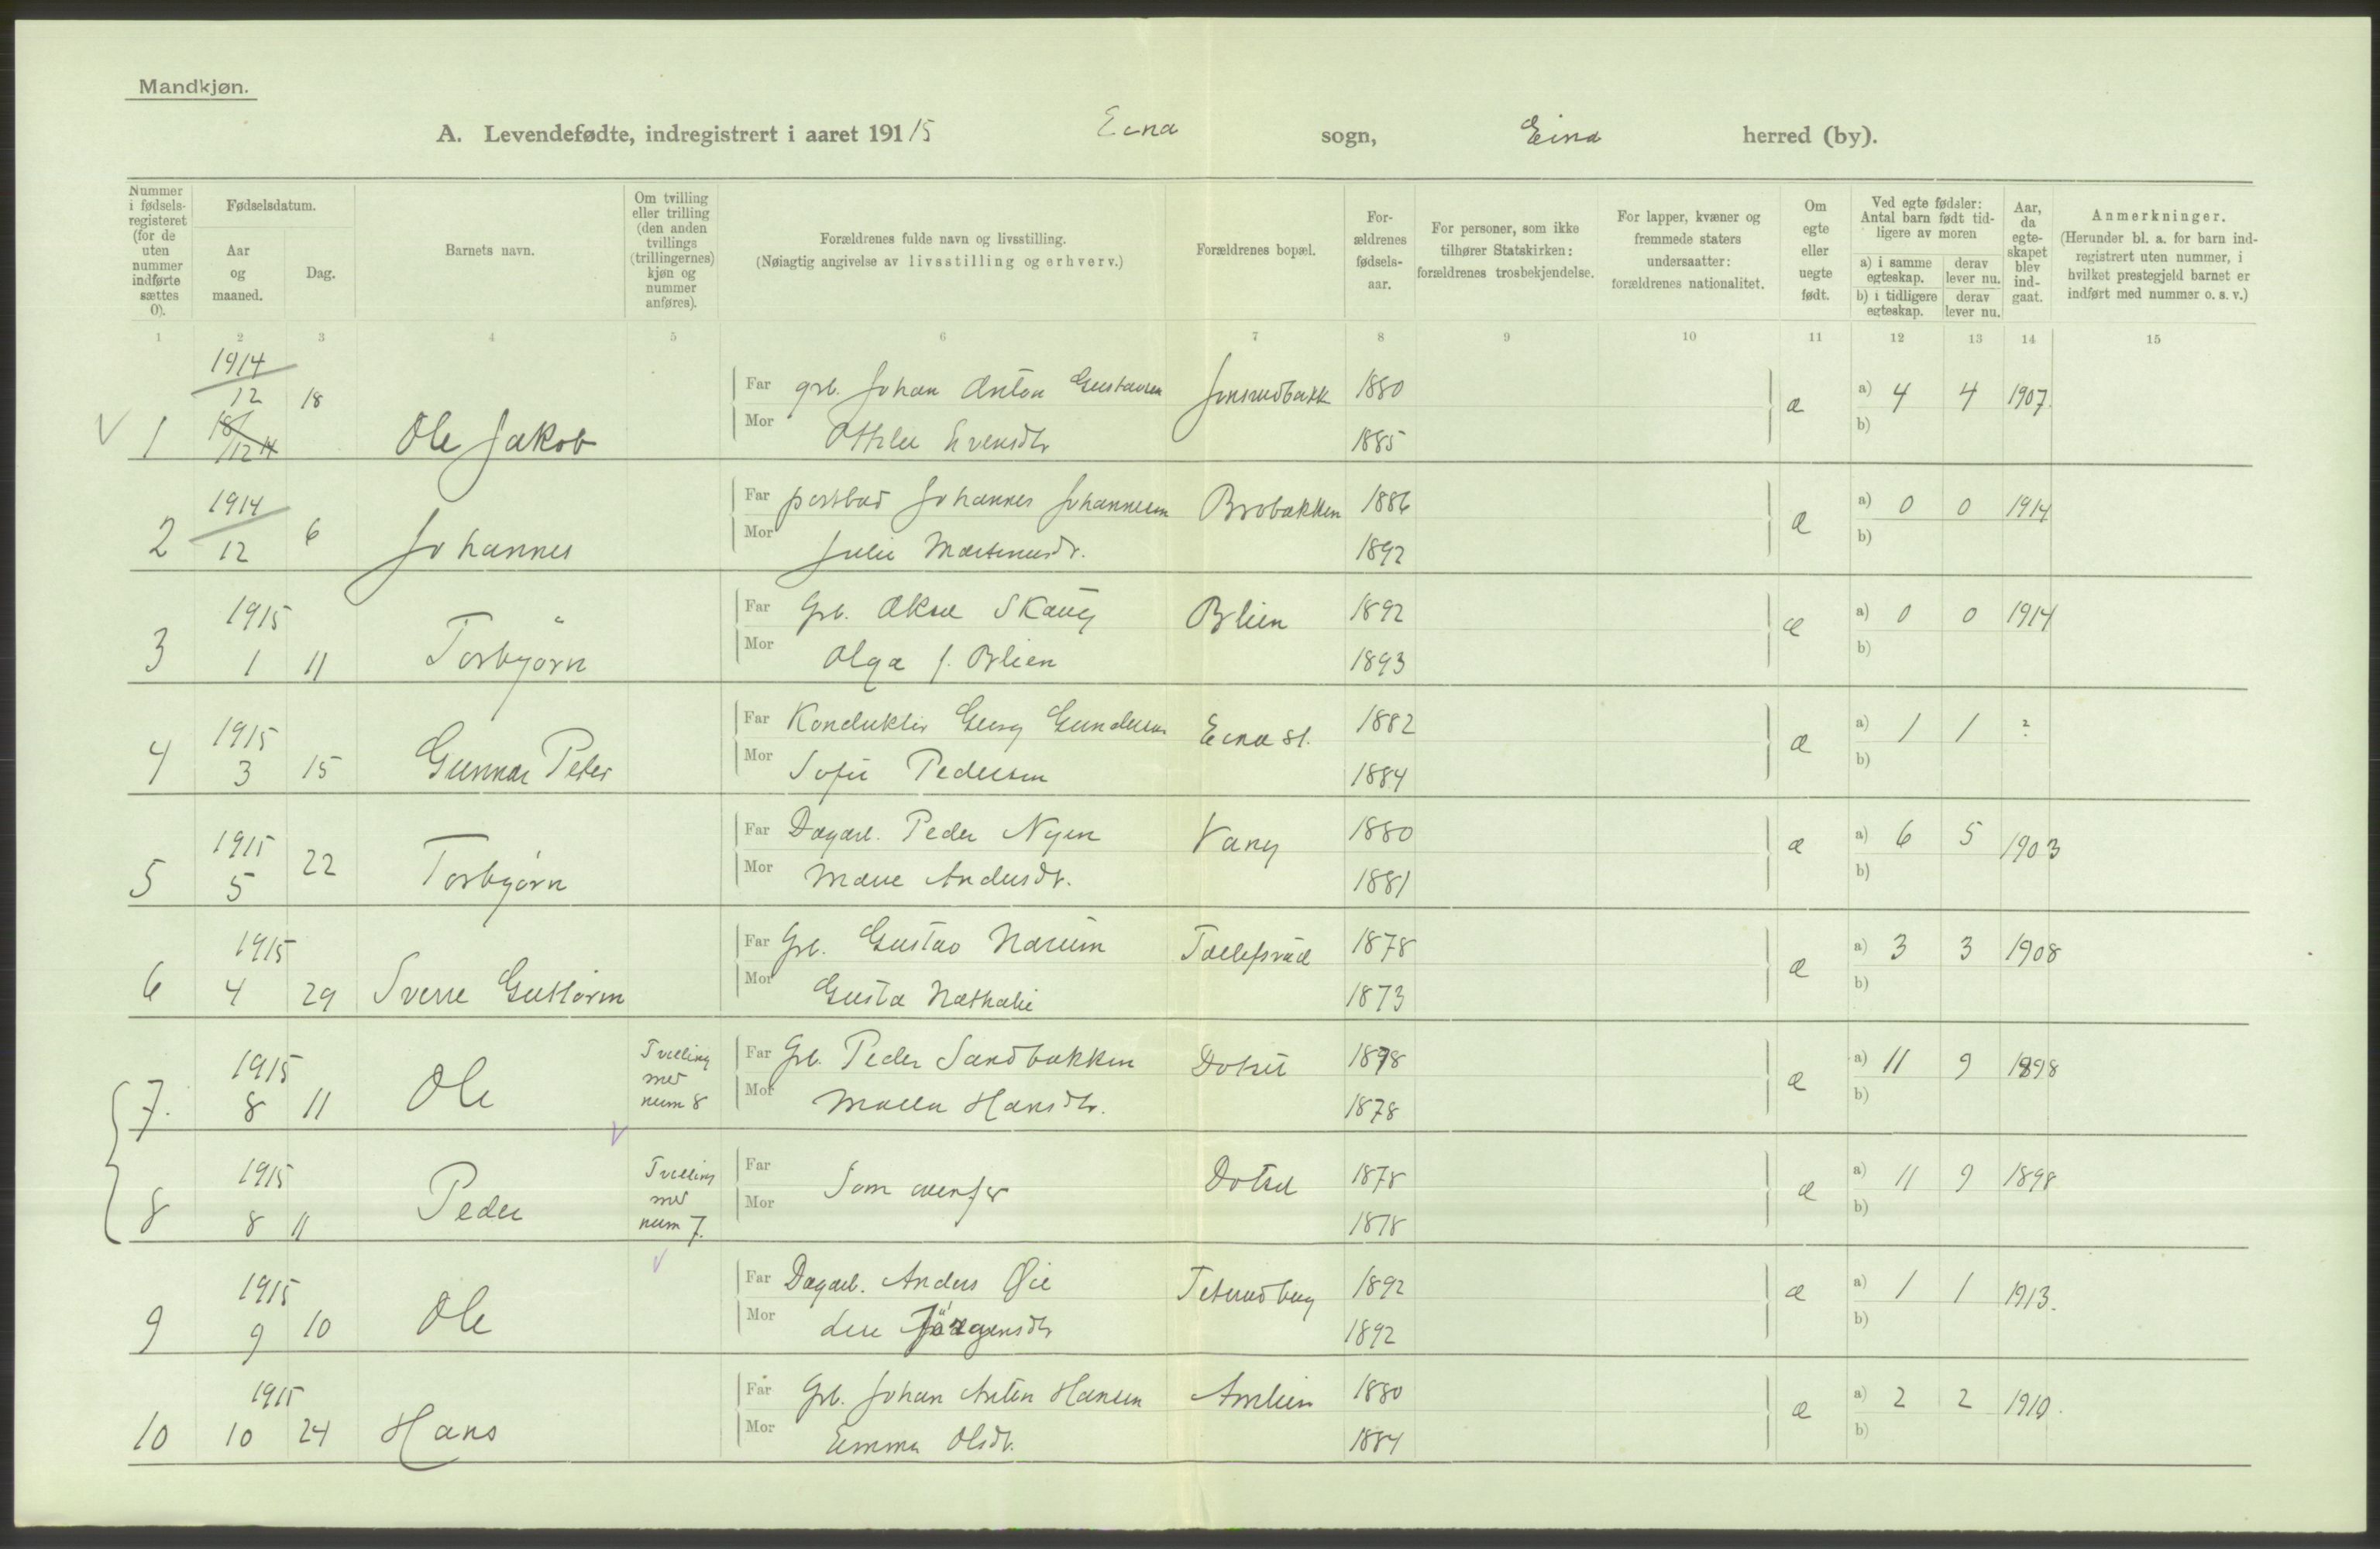 Mandkjøn.
A. Levendefødte, indregistrert i aaret 1915 Eina sogn, Eina herred (by).
Nummer i fødselsregisteret (for de uten nummer indførte sættes 0).
Fødselsdatum.
Aar og maaned.
Dag.
Barnets navn.
Om tvilling eller trilling (den anden tvillings (trillingernes) kjøn og nummer anføres).
Forældrenes fulde navn og livsstilling.
(Nøiagtig angivelse av livsstilling og erhverv.)
Forældrenes bopæl.
Forældrenes fødselsaar.
For personer, som ikke tilhører Statskirken: forældrenes trosbekjendelse.
For lapper, kvæner og fremmede staters undersaatter: forældrenes nationalitet.
Om egte eller uegte født.
Ved egte fødsler: Antal barn født tidligere av moren
a) i samme egteskap. derav lever nu.
b) i tidligere egteskap. derav lever nu.
Aar, da egteskapet blev indgaat.
Anmerkninger.
(Herunder bl. a. for barn indregistrert uten nummer, i hvilket prestegjeld barnet er indført med nummer o. s. v.)
1 2 3 4 5 6 7 8 9 10 11 12 13 14 15
1914
12 18
1 18/12 14 Ole Jakob
Far grb. Johan Anton Gustavsen 1880 æ a) 4 4 1907.
Mor Othilie Evensdtr 1885 b)
1914
2 12 6 Johannes
Far postbud Johannes Johannesen Brobakken 1886 æ a) 0 0 1914
Mor Julie Martinusdr. 1892 b)
1915
3 1 11 Torbjörn
Far Grb. Aksel Skaug Blien 1892 æ a) 0 0 1914
Mor Olga f. Blien 1893 b)
1915
4 3 15 Gunnar Peter
Far Konduktör Georg Gundersen Eina st. 1882 æ a) 1 1 ?
Mor Sofie Pedersen 1884 b)
1915
5 5 22 Torbjørn
Far Dagarb. Peder Nyen Vang 1880 æ a) 6 5 1903
Mor Marie Andersdr. 1881 b)
1915
6 4 29 Sverre Guttorm
Far Grb. Gustav Narum 1878 æ a) 3 3 1908
Mor Gusta Nathalie 1873 b)
1915
7. 8 11 Ole Tvilling med num 8
Far Grb. Peder Sandbakken Dotset 1878 æ a) 11 9 1898
Mor Hansdtr. 1878 b)
1915
8 8 11 Peder Tvilling med num 7.
Far Mor Som ovenfor Dotset 1878 æ a) 11 9 1898
1878 b)
1915
9 9 10 Ole
Far Dagarb. Anders Øie 1892 æ a) 1 1 1913.
Mor Lise Jörgensdtr 1892 b)
1915
10 10 24 Hans
Far Grb. Johan Anton Hansen Amlien 1880 æ a) 2 2 1910.
Mor Emma Olsdr. 1884 b)